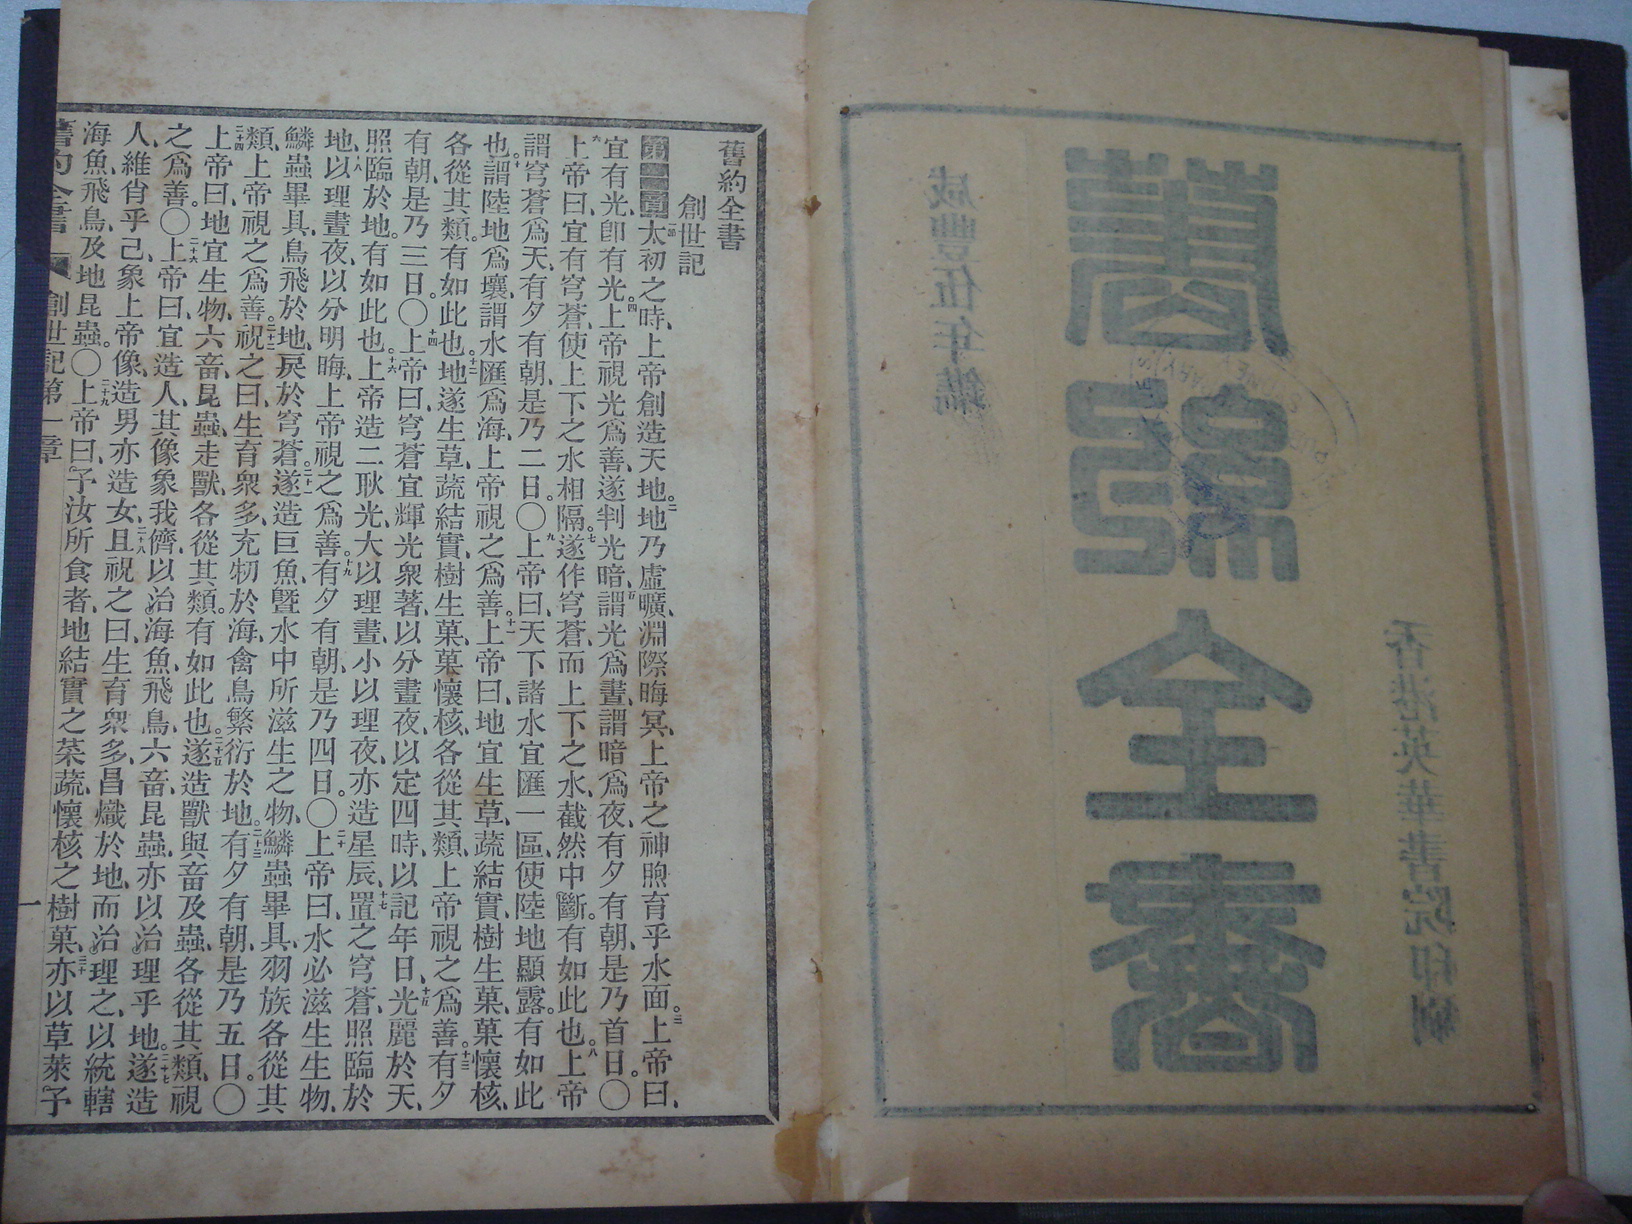 香港英華書院印刷
舊約全書
咸豐伍年鐫
舊約全書
創世記
第一章一節太初之時、上帝創造天地。二地乃虛曠、淵際晦冥、上帝之神煦育乎水面。三上帝曰、
宜有光、卽有光。四上帝視光爲善、遂判光暗、五謂光爲晝、謂暗爲夜、有夕有朝、是乃首日。〇
六上帝曰、宜有穹蒼、使上下之水相隔。七遂作穹蒼、而上下之水、截然中斷。有如此也。八上帝
謂穹蒼爲天、有夕有朝、是乃二日。〇九上帝曰、天下諸水宜匯一區、使陸地顯露。有如此
也。十謂陸地爲壤、謂水匯爲海、上帝視之爲善。十一上帝曰、地宜生草蔬、結實樹生菓、菓懷核、
各從其類。有如此也。十二地遂生草蔬、結實樹生菓、菓懷核、各從其類、上帝視之爲善。十三有夕
有朝、是乃三日。〇十四上帝曰、穹蒼宜輝光衆著、以分晝夜、以定四時、以記年日、十五光麗於天、
照臨於地。有如此也。十六上帝造二耿光、大以理晝、小以理夜、亦造星辰、十七置之穹蒼、照臨於
地、十八以理晝夜、以分明晦、上帝視之爲善。十九有夕有朝、是乃四日。〇二十上帝曰、水必滋生生物、
鱗蟲畢具、鳥飛於地、戾於穹蒼。二十一遂造巨魚、曁水中所滋生之物、鱗蟲畢具、羽族各從其
類、上帝視之爲善。二十二祝之曰、生育衆多、充牣於海、禽鳥繁衍於地。二十三有夕有朝、是乃五日。〇
二十四上帝曰、地宜生物、六畜、昆蟲、走獸、各從其類。有如此也。二十五遂造獸與畜及蟲、各從其類、視
之爲善。〇二十六上帝曰、宜造人、其像象我儕、以治海魚、飛鳥、六畜、昆蟲、亦以治理乎地。二十七遂造
人、維肖乎己、象上帝像、造男亦造女、二十八且祝之曰、生育衆多、昌熾於地、而治理之、以統轄
海魚、飛鳥、及地昆蟲。〇二十九上帝曰、予汝所食者、地結實之菜蔬、懷核之樹菓、三十亦以草萊、予
舊約全書 創世記第一章 一